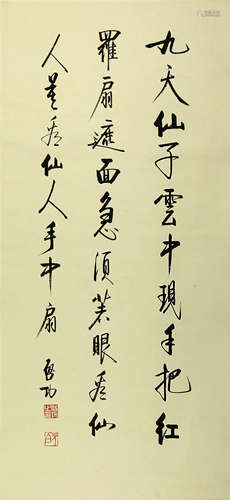 九天仙子雲中現手把紅
羅扇遮面急須著眼看仙
人莫看仙人手中扇
啟功